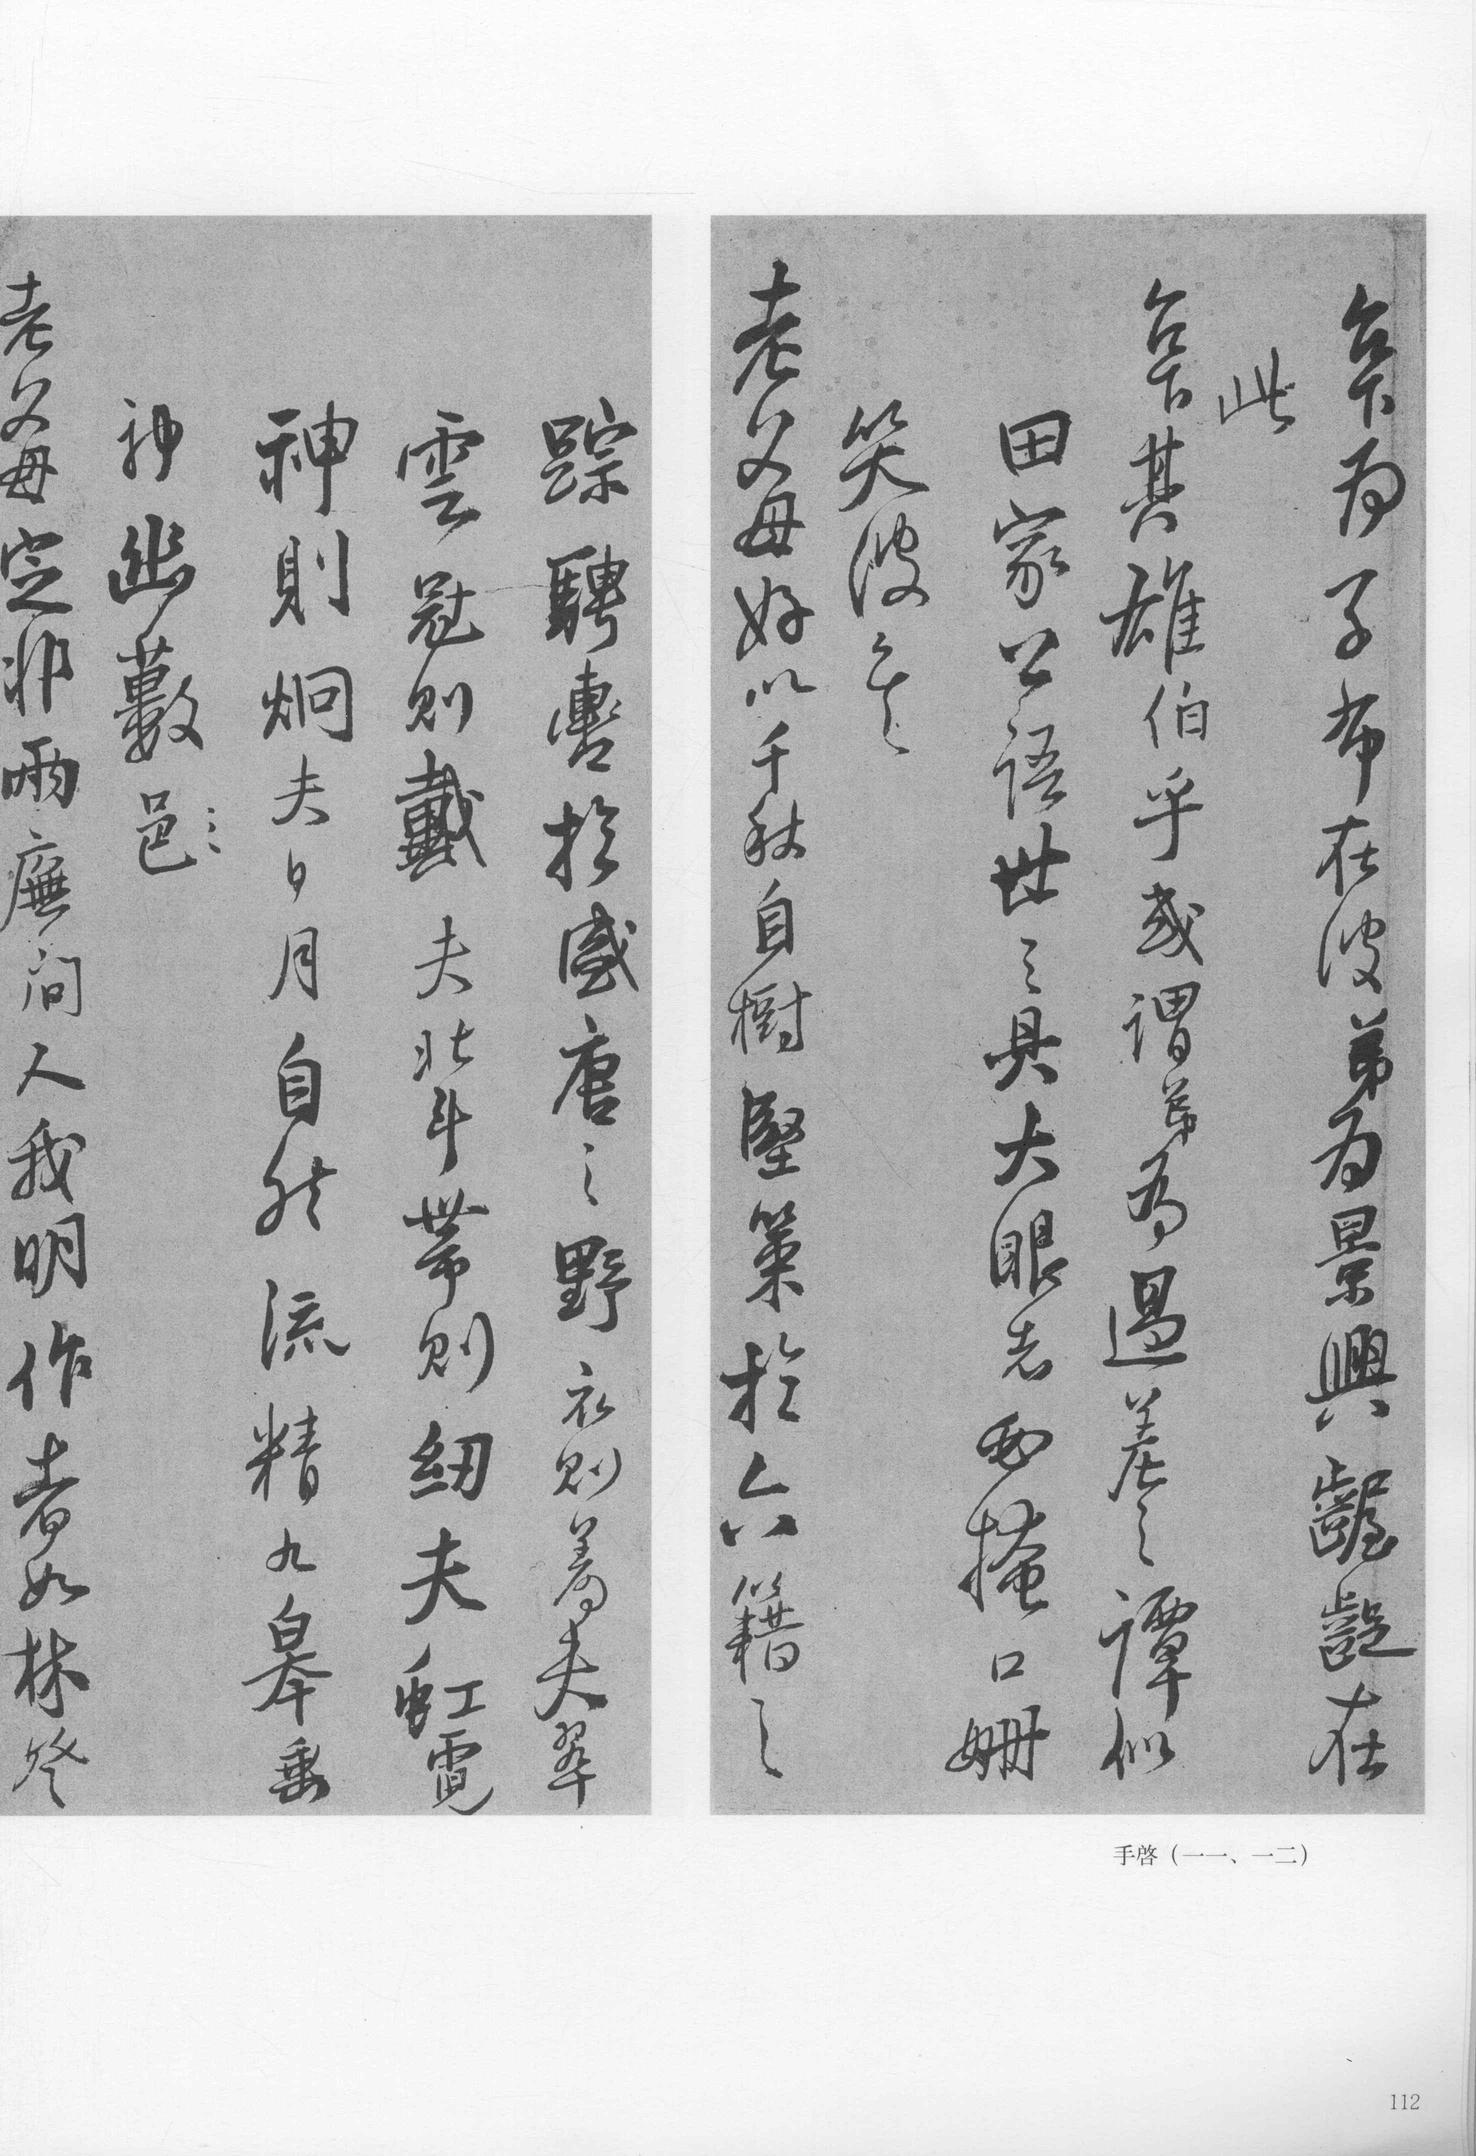 台下为子布在彼弟为景興齷齪在
此
台下其雄伯乎或謂弟為過差之譚似
田家公語世之具大眼者西掩口姍
笑彼之
老父母好以千秋自樹堅策於六籍之
踪騁轡於盛唐之野衣則著夫翠
雲冠則戴夫北斗帶則紉夫虹霓
神則炯夫日月自然流精九皋垂
神幽藪邑
老父母定非兩廡間人我明作者如林終
手啓（一一、一二）
112